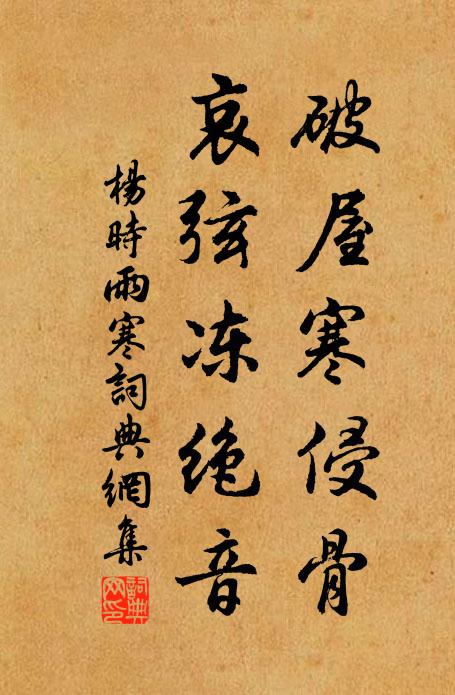 破屋寒侵骨
哀弦冻绝音
楊時雨寒詞典網集
詞典
网印